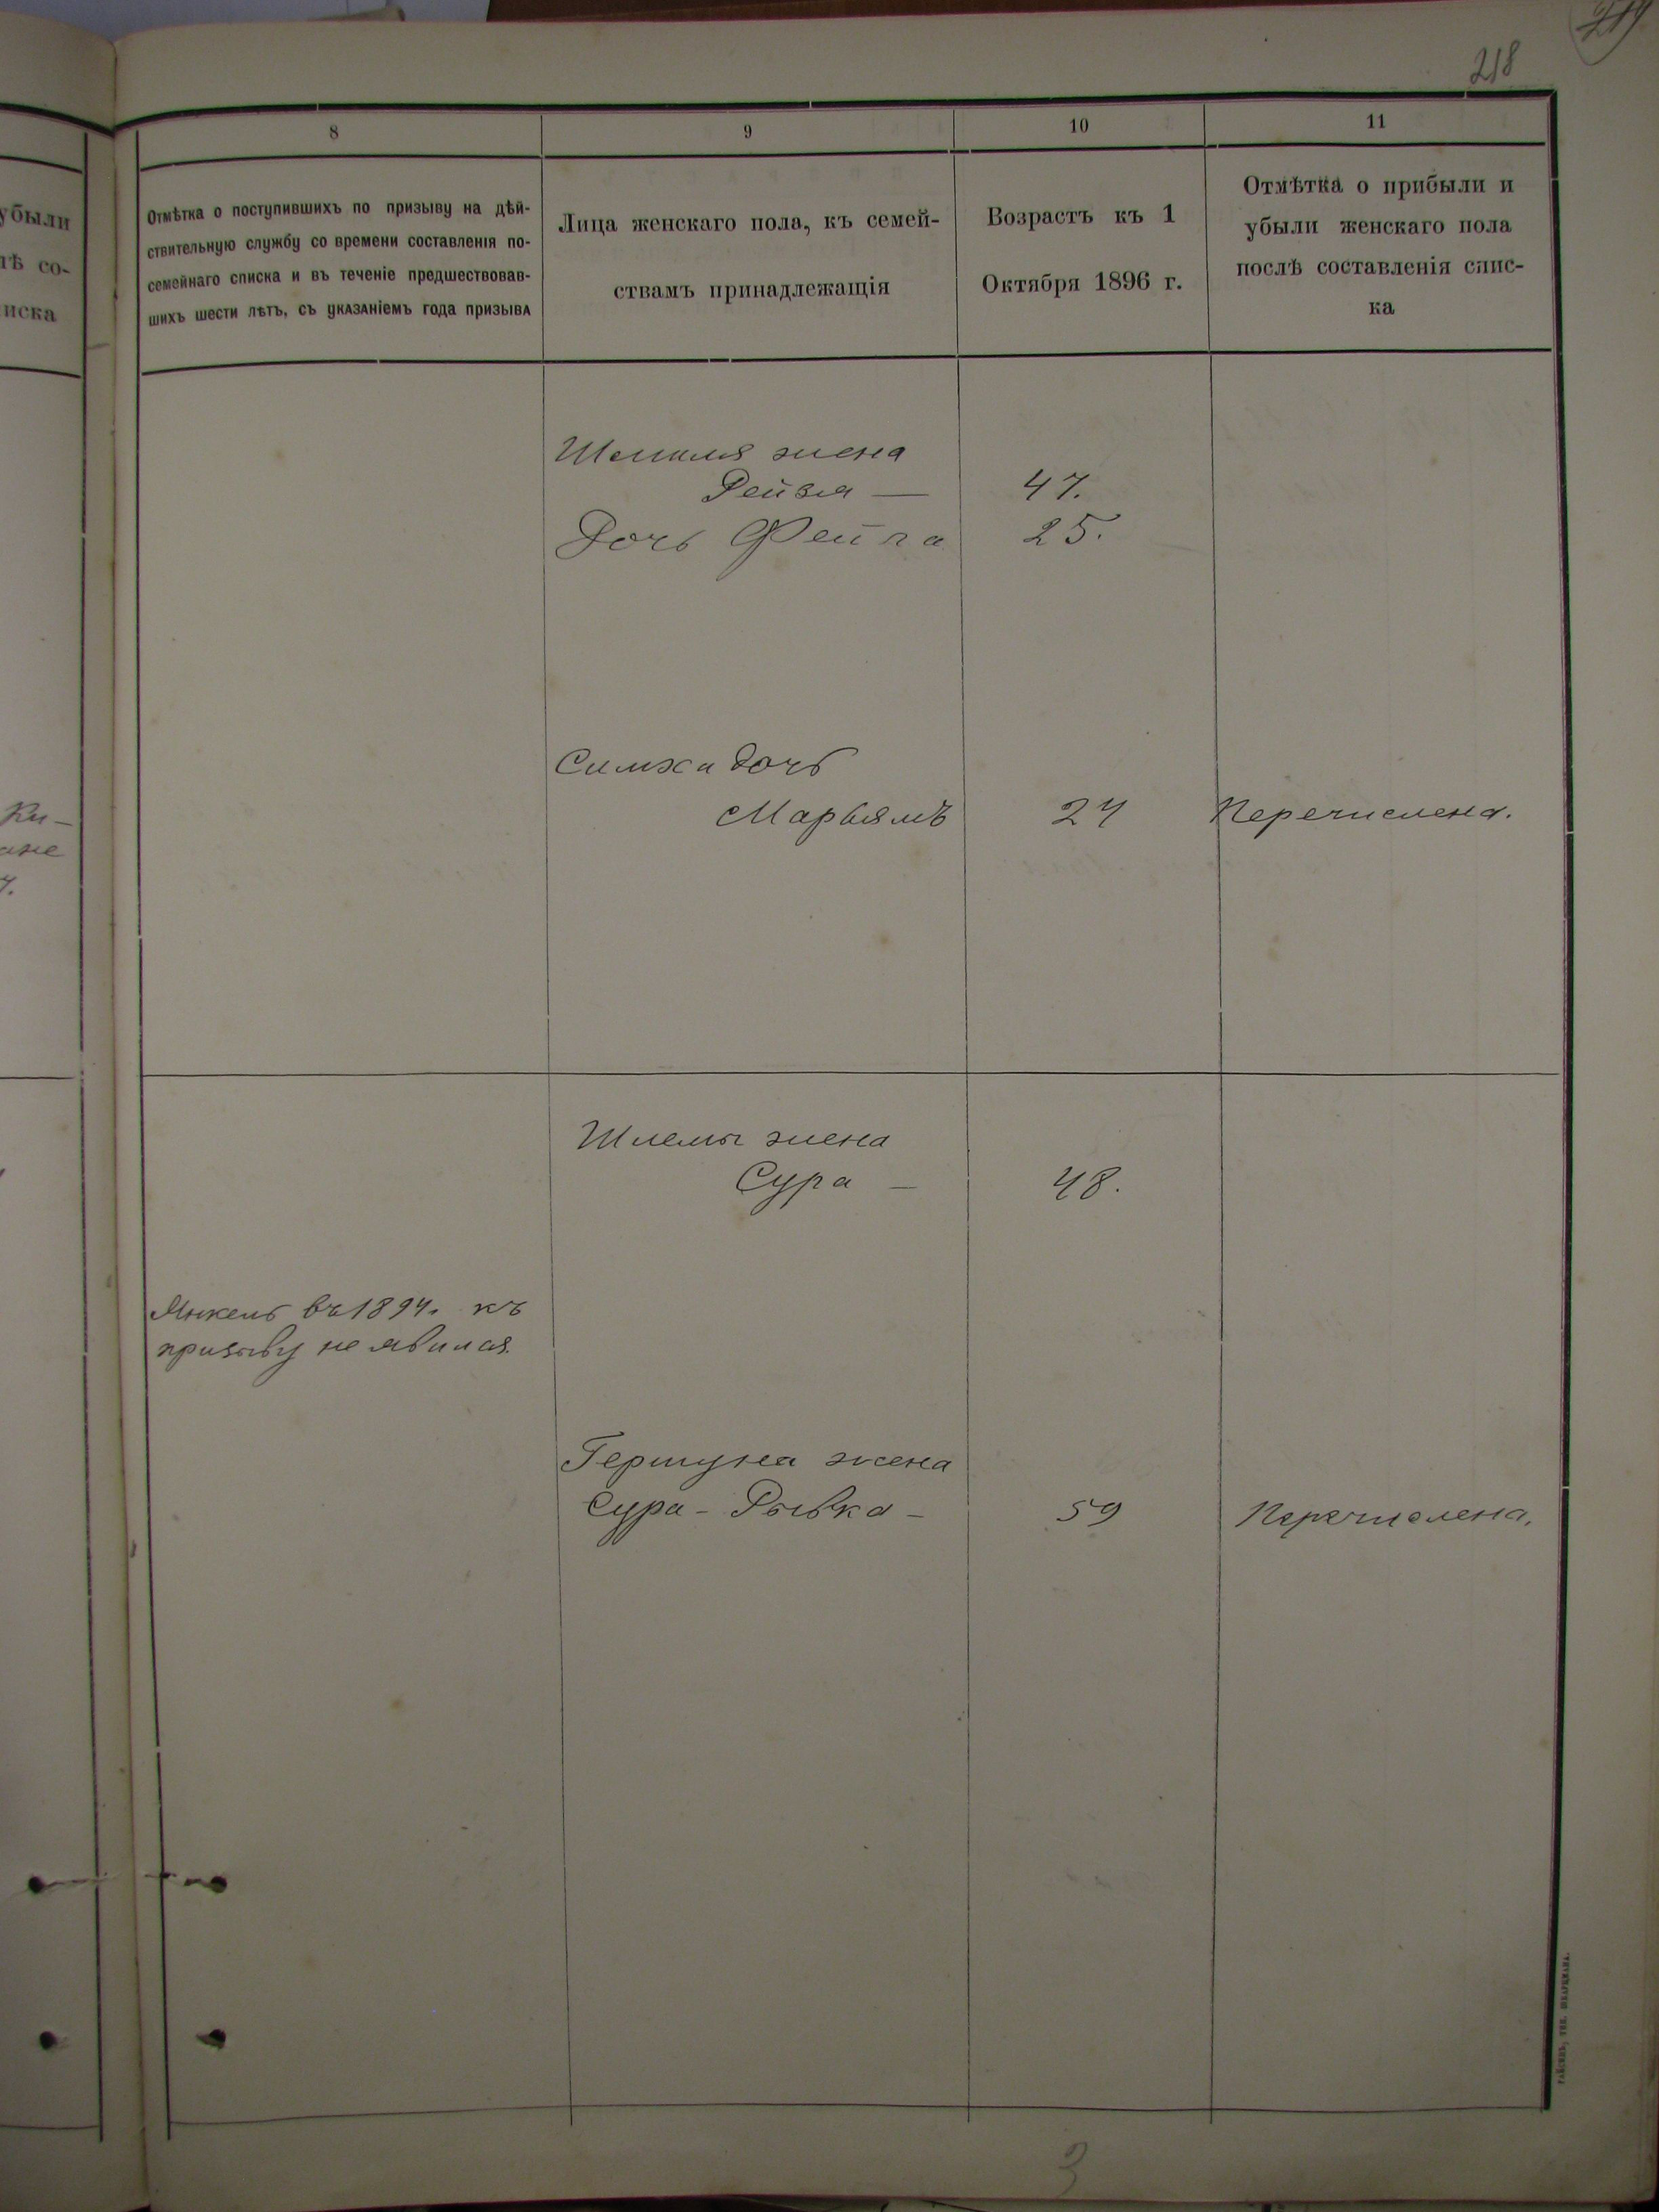 218
8
9
10
11
Отмѣтка о поступившихъ по призыву на дѣй-
ствительную службу со времени составленія по-
семейнаго списка и въ теченіе предшествовав-
шихъ шести лѣтъ, съ указаніемъ года призыва
Лица женскаго пола, къ семей-
ствамъ принадлежащія
Возрастъ къ 1
Октября 1896 г.
Отмѣтка о прибыли и
убыли женскаго пола
послѣ составленія спис-
ка
убыли
со-
иска
жена
Рейзя — 47.
Дочь Фейга 25.
Симхи дочь
Марьямъ 24 Перечислена.
Шлемы жена
Сура — 48.
Янкель въ 1894 г. къ
призыву не явился.
Гершуна жена
Сура - Рывка - 59 Перечислена.
3